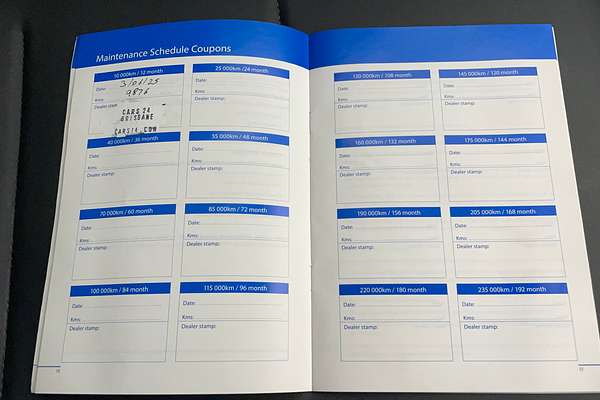 Maintenance Schedule Coupons
10 000km / 12 month
Date: 3/01/25
Kms: 9876
Dealer stamp:
CARS 24
BRISBANE
CARS24.COM
25 000km /24 month
Date:
Kms:
Dealer stamp:
40 000km / 36 month
Date:
Kms:
Dealer stamp:
55 000km / 48 month
Date:
Kms:
Dealer stamp:
70 000km / 60 month
Date:
Kms:
Dealer stamp:
85 000km / 72 month
Date:
Kms:
Dealer stamp:
100 000km / 84 month
Date:
Kms:
Dealer stamp:
115 000km / 96 month
Date:
Kms:
Dealer stamp:
130 000km / 108 month
Date:
Kms:
Dealer stamp:
145 000km / 120 month
Date:
Kms:
Dealer stamp:
160 000km / 132 month
Date:
Kms:
Dealer stamp:
175 000km / 144 month
Date:
Kms:
Dealer stamp:
190 000km / 156 month
Date:
Kms:
Dealer stamp:
205 000km / 168 month
Date:
Kms:
Dealer stamp:
220 000km / 180 month
Date:
Kms:
Dealer stamp:
235 000km / 192 month
Date:
Kms:
Dealer stamp: